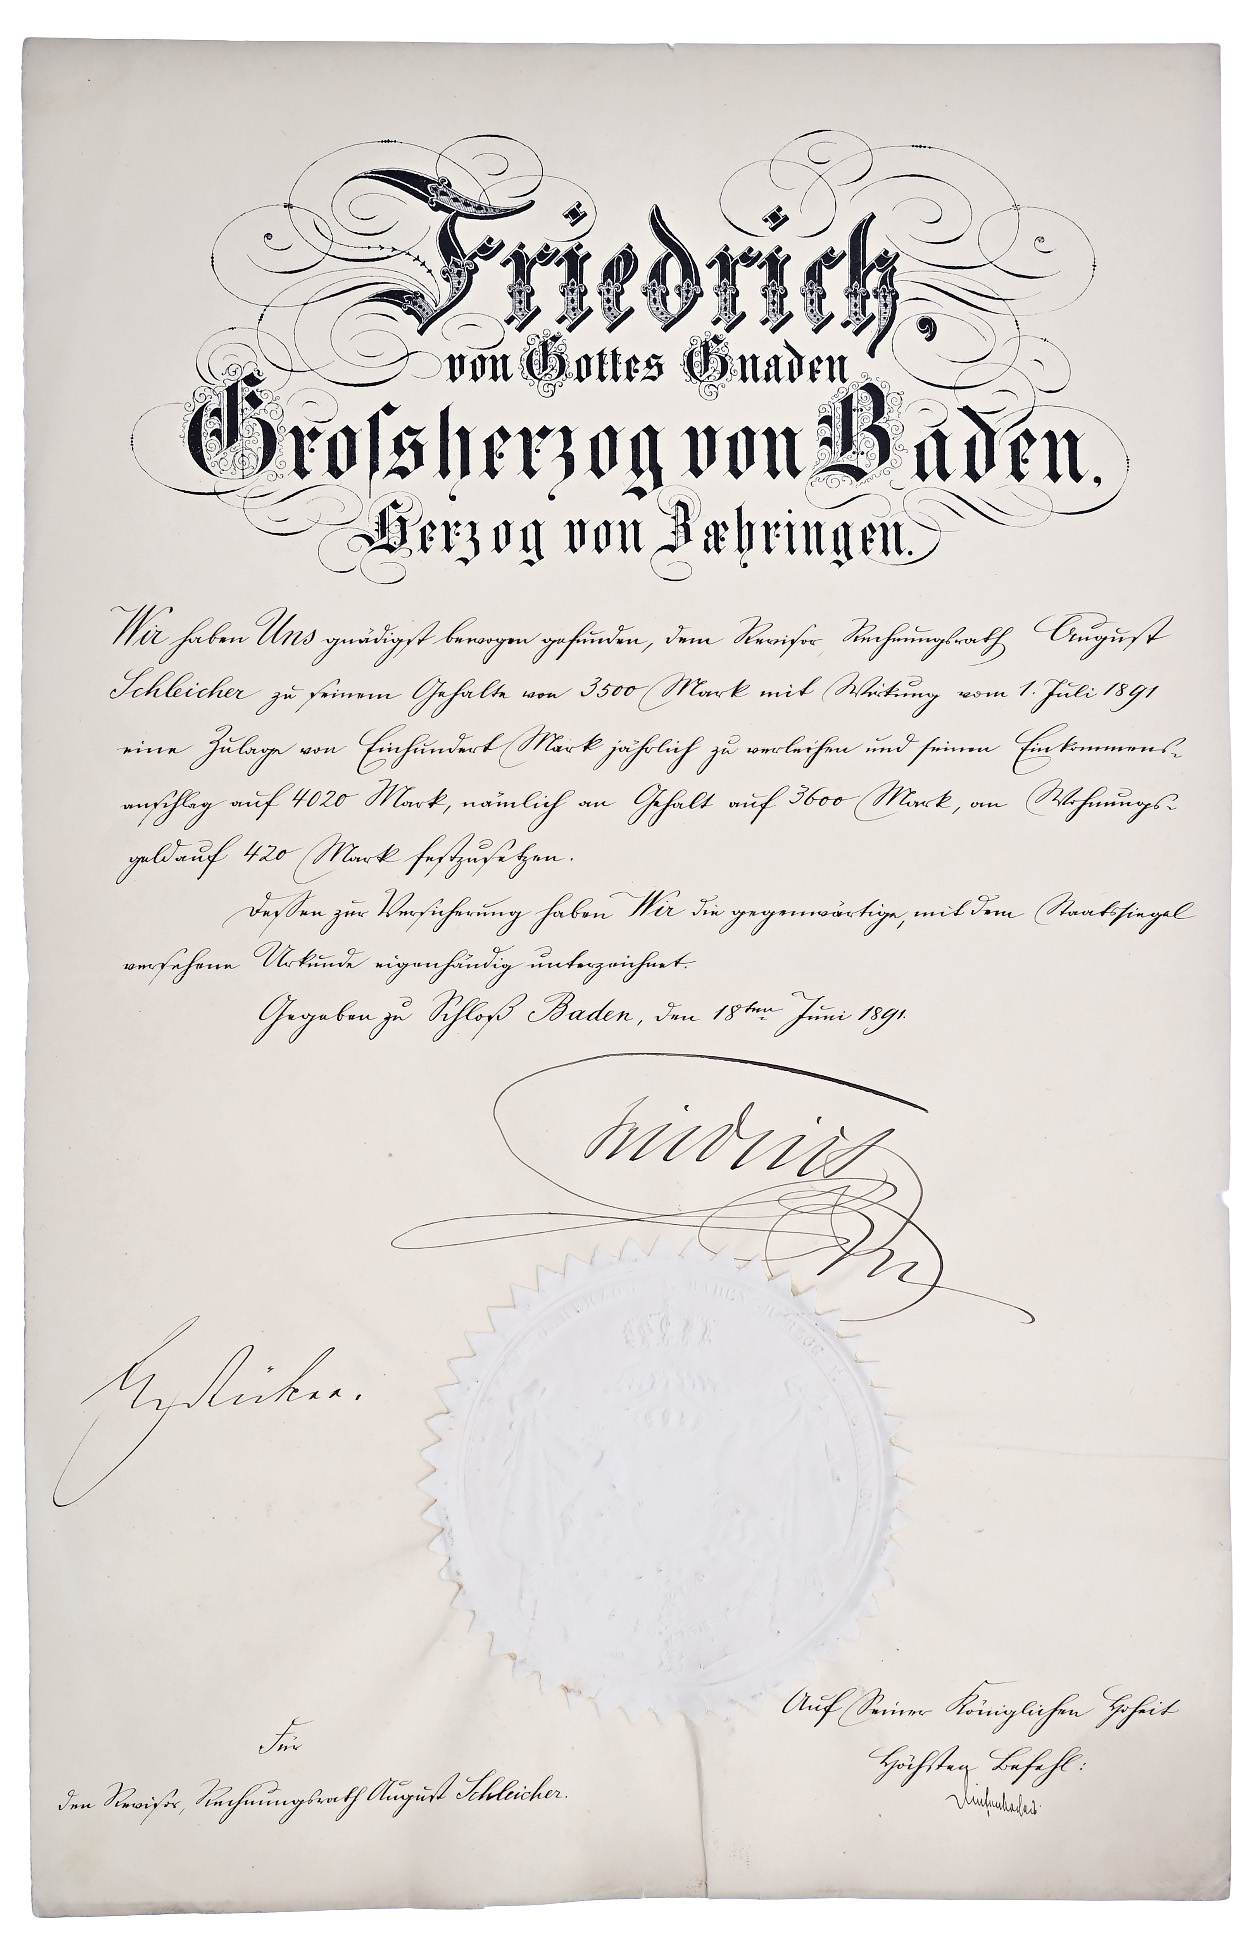 Friedrich,
von Gottes Gnaden
Grossherzog von Baden,
Herzog von Zæhringen.
Wir haben Uns gnädigst bewogen gefunden, dem Revisor, Rechnungsrath August
Schleicher zu seinem Gehalte von 3500 Mark mit Wirkung vom 1. Juli 1891
eine Zulage von Einhundert Mark jährlich zu verleihen und seinen Einkommens-
anschlag auf 4020 Mark, nämlich an Gehalt auf 3600 Mark, an Wohnungs-
geld auf 420 Mark festzusetzen.
Dessen zur Versicherung haben Wir die gegenwärtige, mit dem Staatssiegel
versehene Urkunde eigenhändig unterzeichnet.
Gegeben zu Schloß Baden, den 18ten Juni 1891.
Friedrich
Auf Seiner Königlichen Hoheit
Höchsten Befehl:
Für
den Revisor, Rechnungsrath August Schleicher.